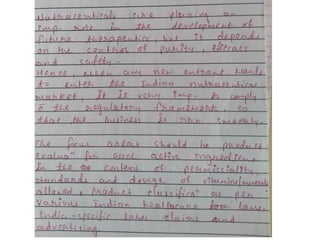 Nutraceuticals are playing an
imp. role in the development of
future therapeutics, but it depends
on the control of purity, efficacy
and safety.
Hence, when any new entrant wants
to enter the Indian nutraceutical
market, It is very imp. to comply
the regulatory framework, so
that the business is run smoothly.
The focus areas should be product
evaluatn for each active ingredient
in the context of permissiality,
standards and dosage of vitamins/minerals
allowed, product classificatn as per
various Indian healthcare laws,
India-specific label claims and
advertizing.